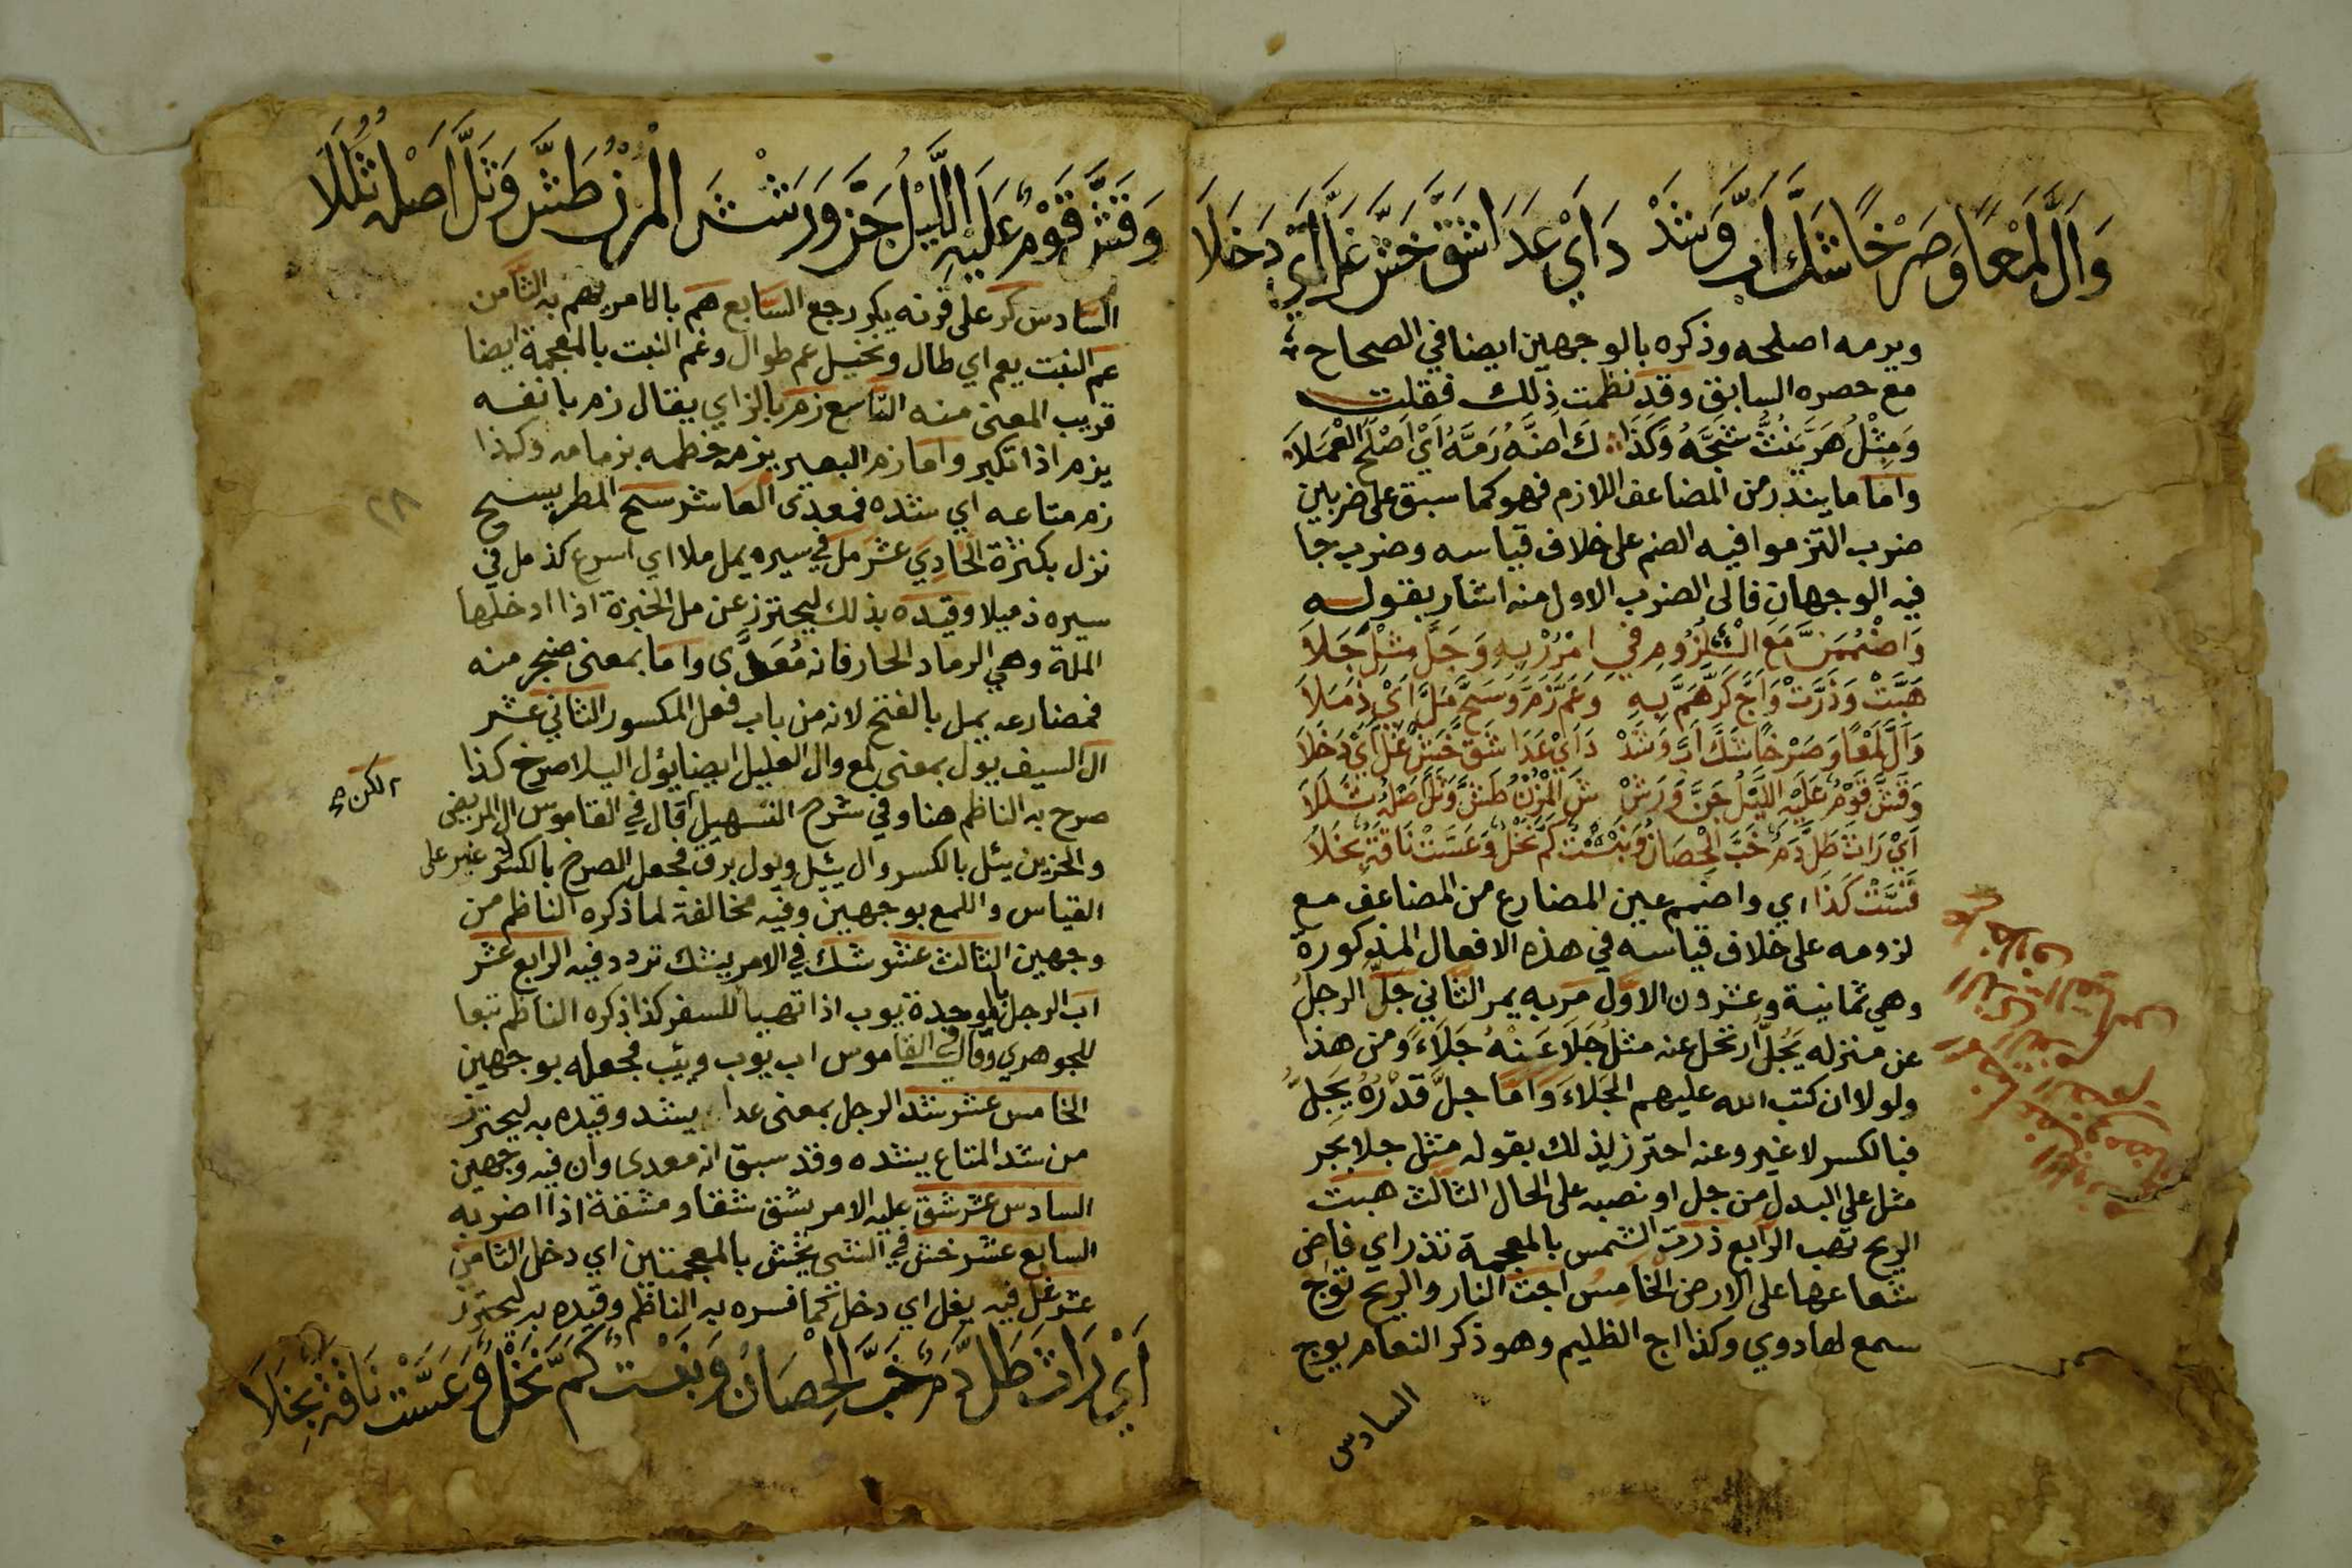 وَأَلَّ لَمْعًا وَصَرْخًا شَكَّ أَبَّ وَشَدْ دَ أَيْ عَدَا شَقَّ خَشَّ غَلَّ أَيْ دَخَلَا
ويرمه اصلحه وذكره بالوجهين ايضا في الصحاح
مع حصره السابق وقد نظمت ذلك فقلت
وَمِثْلُ هَرَّ يَنُثُّ شَجَّهُ وَكَذَا كَ اَضَّهُ رَمَّهُ اَيْ اَصْلَحَ الْعَمَلَا
واما ما يندر من المضاعف اللازم فهو كما سبق على ضربين
ضرب التزموا فيه الضم على خلاف قياسه وضرب جا
فيه الوجهان فالى الضرب الاول منه اشار بقوله
وَاضْمُمَنَّ مَعَ اللُّزُومِ فِي امْرُرْ بِهِ وَجَلَّ مِثْلُ جَلَا
هَبَّتْ وَذَرَّتْ وَاَجَّ كَرَّ هَمَّ بِهِ وَعَمَّ زَمَّ وَسَحَّ مَلَّ اَيْ ذَمَلَا
وَاَلَّ لَمْعًا وَصَرْخًا شَكَّ اَبَّ وَشَدْ دَ اَيْ عَدَا شَقَّ خَشَّ غَلَّ اَيْ دَخَلَا
وَقَشَّ قَوْمٌ عَلَيْهِ اللَّيْلُ جَنَّ وَرَشْ شَ الْمُزْنُ طَشَّ وَثَلَّ اَصْلُهُ ثَلَلَا
اَيْ رَاثَ طَلَّ دَمٌ خَبَّ الْحِصَانُ وَنَبْتٌ كَمَّ نَخْلٌ وَعَسَّتْ نَاقَةٌ بِخَلَا
قَسَّتْ كَذَا اي واضمم عين المضارع من المضاعف مع
لزومه على خلاف قياسه في هذه الافعال المذكورة
وهي ثمانية وعشرون الاول مر به يمر الثاني جل الرجل
عن منزله يَجُلُّ ارتحل عنه مثل جَلَا عَنْهُ جَلَاءً ومن هذا
ولولا ان كتب الله عليهم الجَلَاءَ وَاَمَا جلَّ قَدْرُهُ يَجِلُّ
فبالكسر لا غير وعنه احترز لذلك بقوله مثل جلا بجر
مثل على البدل من جل او نصبه على الحال الثالث هبت
الريح تهب الرابع ذرت الشمس بالمعجمة تذر اي فاض
شعاعها على الارض الخامس اجت النار والريح تؤج
سمع لها دوي وكذا اج الظليم وهو ذكر النعام يوج
السادس
وَقَشَّ قَوْمٌ عَلَيْهِ اللَّيْلُ جَنَّ وَرَشْ شَ الْمُزْنُ طَشَّ وَثَلَّ اَصْلُهُ ثَلَلَا
السادس كر على قرنه يكر رجع السابع هم بالامر يهم به الثامن
عم النبت يعم اي طال ونخيل عم طوال وغم النبت بالمعجمة ايضا
قريب المعنى منه التاسع زم بالزاي يقال زم بانفه
يزم اذا تكبر واما زم البعير يزمه خطمه بزمامه وكذا
زم متاعه اي شده فمعدى العاشر سح المطر يسح
نزل بكثرة الحادي عشر مل في سيره يمل ملا اي اسرع كذمل في
سيره ذميلا وقيده بذلك ليحترز عن مل الخبزة اذا ادخلها
الملة وهي الرماد الحار فانه مُعَدًّى واما بمعنى ضجر منه
فمضارعه يمل بالفتح لانه من باب فعل المكسور الثاني عشر
ال السيف يول بمعنى لمع وال العليل ايضا يؤل اليلا صرخ كذا
صرح به الناظم هنا وفي شرح التسهيل قال في القاموس ال المريض
لكن
والحزين يئل بالكسر وال يئل ويول برق فجعل الصرخ بالكسر غير على
القياس واللمع بوجهين وفيه مخالفة لما ذكره الناظم من
وجهين الثالث عشر شك في الامر يشك تردد فيه الرابع عشر
اب الرجل بالموحدة يوب اذا تهيا للسفر كذا ذكره الناظم تبعا
للجوهري وقال في القاموس اب يوب ويئب فجعله بوجهين
الخامس عشر شد الرجل بمعنى عدا يشد وقيده به ليحترز
من شد المتاع يشده وقد سبق انه معدى وان فيه وجهين
السادس عشر شق عليه الامر يشق شقا ومشقة اذا اضر به
السابع عشر خش في الشي يخش بالمعجمتين اي دخل الثامن
عشر غل فيه يغل اي دخل كما فسره به الناظم وقيده به ليحترز
اَيْ رَاثَ طَلَّ دَمٌ خَبَّ الْحِصَانُ وَنَبْتٌ كَمَّ نَخْلٌ وَعَسَّتْ نَاقَةٌ بِخَلَا
٢٨